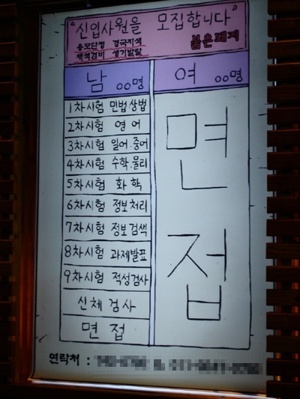 "신입사원을 모집합니다"
용모단정 경국지색
백옥겸비 생기발랄
붉은돼지
남 00명
여 00명
1차시험 민법상법
2차시험 영어
3차시험 일어, 중어
4차시험 수학, 물리
5차시험 화학
6차시험 정보처리
7차시험 정보검색
8차시험 과제발표
9차시험 적성검사
신체검사
면접
면접
연락처 :